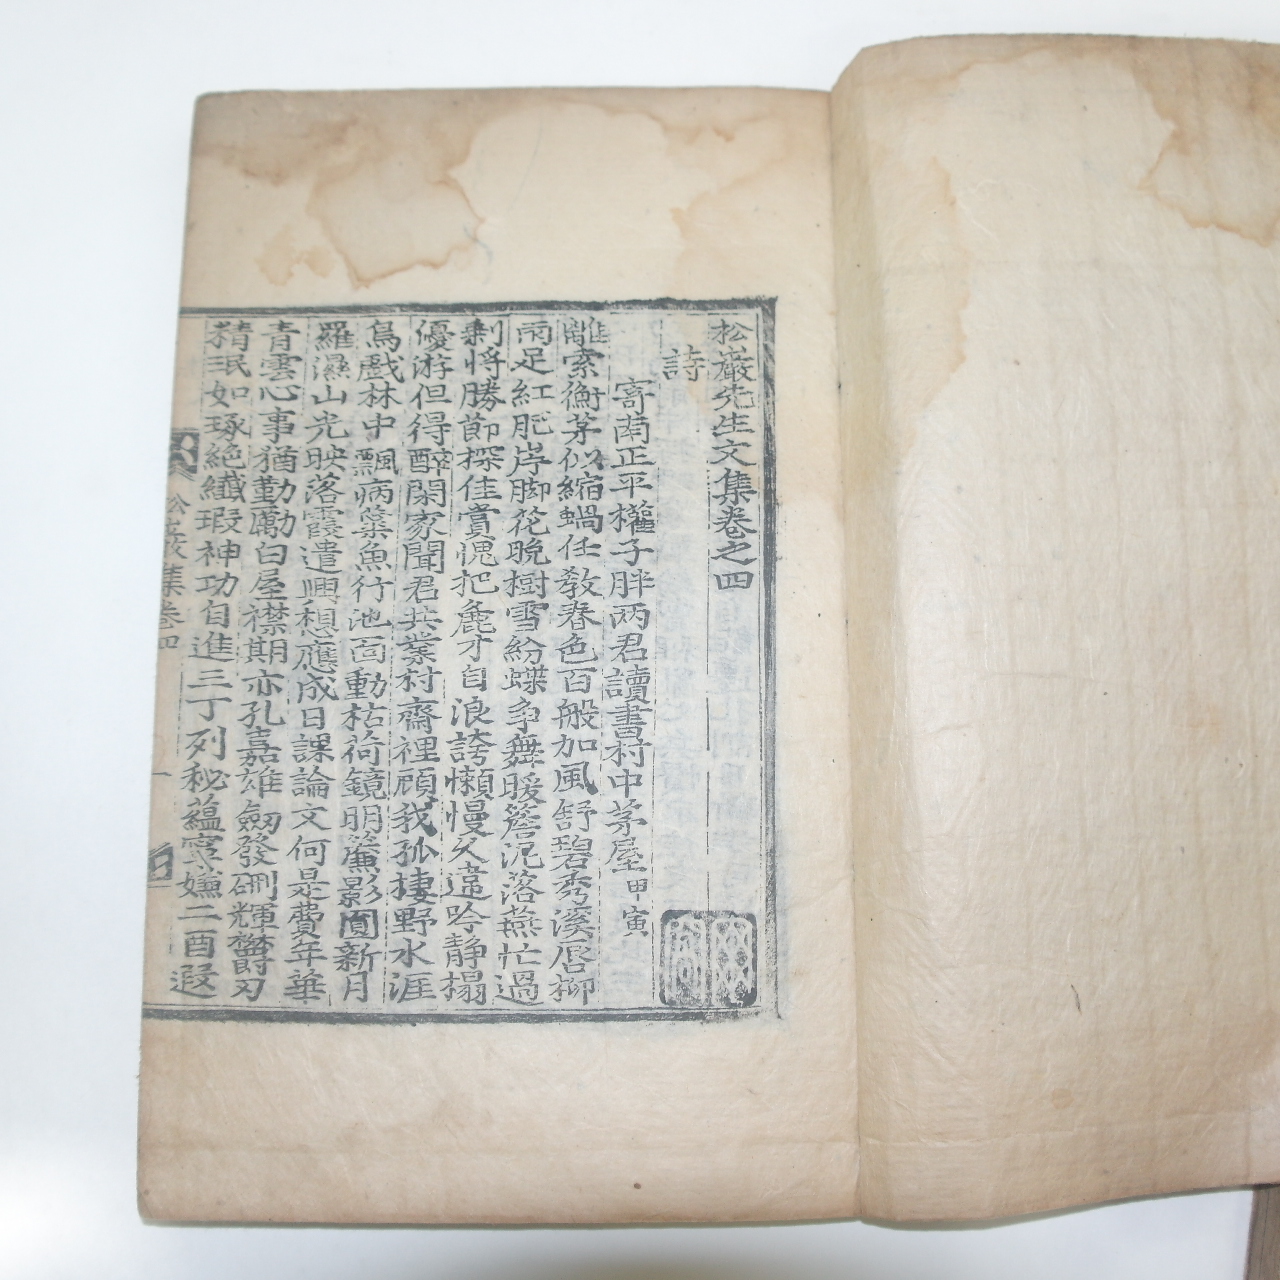 松巖先生文集卷之四
詩
寄南正平權子胖兩君讀書村中茅屋甲寅
離索衡茅似縮蝸任教春色百般加風舒碧秀溪唇柳
雨足紅肥岸脚花晩樹雪紛蝶爭舞暖簷泥落燕忙過
剩將勝節探佳賞愧把麁才自浪誇懶慢久違吟靜榻
優游但得醉閑家聞君共業村齋裡顧我孤棲野水涯
鳥戲林中飄病蘂魚行池面動枯荷鏡明簾影圓新月
羅濕山光映落霞遣興想應成日課論文何是費年華
青雲心事猶勤勵白屋襟期亦孔嘉雄劒發硎輝鬱刃
精珉如琢絶纖瑕神功自進三丁列秘蘊寧嫌二酉遐
松巖集卷四
一